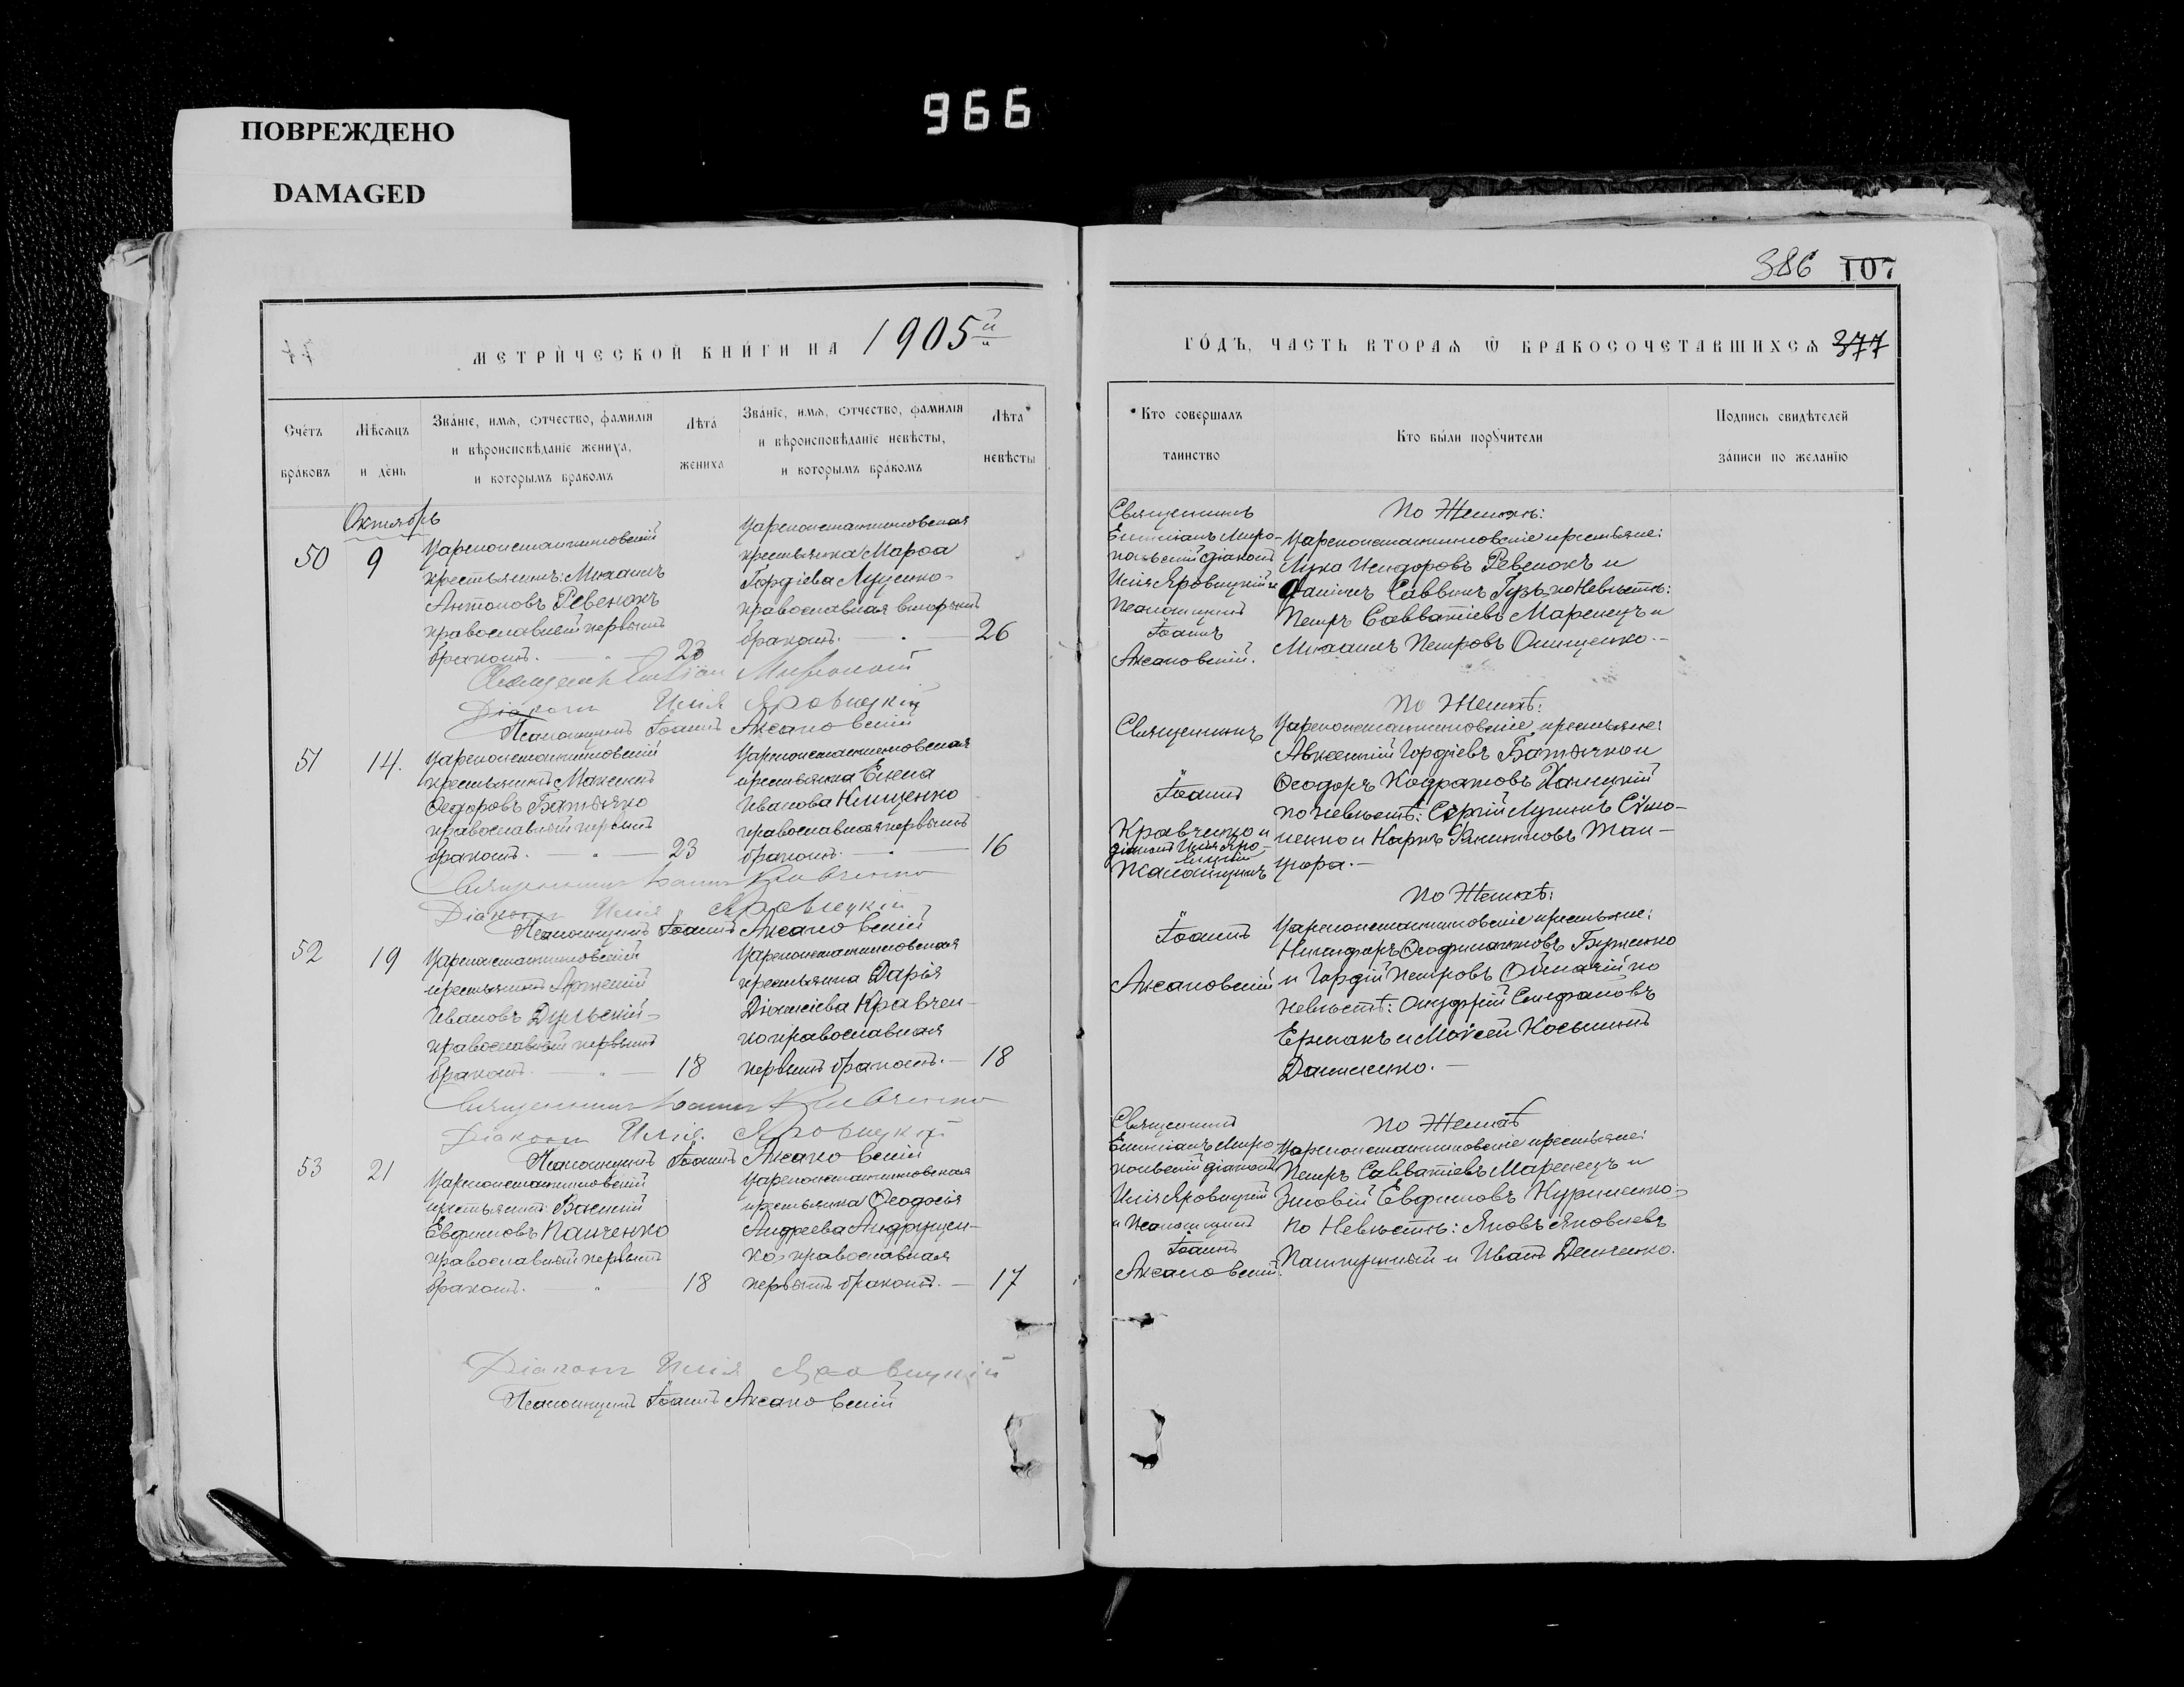 966
ПОВРЕЖДЕНО
DAMAGED
386 107
МЕТРИ́ЧЕСКОЙ КНИ́ГИ НА 1905й
ГО́ДЪ, ЧАСТЬ ВТОРАѦ Ѡ БРАКОСОЧЕТАВШИХСѦ 377
Сче́тъ
бра́ковъ
Мѣ́сѧцъ
и де́нь
Зва́нїе, и́мѧ, ѻтчество, фамилїѧ
и вѣроисповѣ́данїе жениха̀,
и которымъ бракомъ
Лѣ́та
жениха
Зва́нїе, и́мѧ, ѻтчество, фамилїѧ
и вѣроисповѣ́данїе невѣ́сты,
и которымъ бра́комъ
Лѣ́та
невѣ́сты
Кто совершалъ
таинство
Кто бы́ли порꙋчители
Подпись свидѣтелей
за́писи по жела́нїю
Октябрь
50
9
Цареконстантиновскій
крестьянинъ: Михаилъ
Антоновъ Ревенокъ
православный первымъ
бракомъ. 23
Цареконстантиновская
крестьянка Марѳа
Гордіева Луценко
православная вторымъ
бракомъ. 26
Священникъ
діаконъ
Илія Яровицкій и
Псаломщикъ
Іоаннъ
Аксановскій.
По Женихѣ:
Цареконстантиновскіе крестьяне:
Лука Исидоровъ Ревенокъ и
Саввинъ Гузь по Невѣстѣ:
Петръ Савватіевъ Маренецъ и
Михаилъ Петровъ Онищенко.
Діаконъ Илія Яровицкій
Псаломщикъ Іоаннъ Аксановскій
51
14.
Цареконстантиновскій
крестьянинъ Максимъ
Ѳедоровъ Батючко
православный первымъ
бракомъ. 23
Цареконстантиновская
крестьянка Елена
Иванова Клищенко
православная первымъ
бракомъ. 16
Священникъ
Іоаннъ
Кравченко и
діаконъ Илія Яро-
вицкій
Псаломщикъ
Іоаннъ
Аксановскій
По Женихѣ:
Цареконстантиновскіе крестьяне:
Авксентій Гордіевъ Батючко и
Ѳеодоръ Кодратовъ Халицкій
по невѣстѣ: Сергій Лукинъ Симо-
ненко и Карпъ Филиповъ Жан-
Священникъ Іоаннъ Кравченко
Діаконъ Илія Яровицкій
Псаломщикъ Іоаннъ Аксановскій
52
19
Цареконстантиновскій
крестьянинъ
Ивановъ Дульскій
православный первымъ
бракомъ. 18
Цареконстантиновская
крестьянка Дарія
Діонисіева Кравчен-
ко православная
первымъ бракомъ. 18
По Женихѣ:
Цареконстантиновскіе крестьяне:
Никифоръ Ѳеофилактовъ
и Гордій Петровъ по
невѣстѣ: Онуфрій Стефановъ
Ермакъ и Моисей Косьминъ
Даниленко.
Священникъ Іоаннъ Кравченко
Діаконъ Илія Яровицкій
Псаломщикъ Іоаннъ Аксановскій
53
21
Цареконстантиновскій
крестьянинъ: Василій
Евфимовъ Панченко
православный первымъ
бракомъ. 18
Цареконстантиновская
крестьянка Ѳеодосія
Андреева Андрущен-
ко православная
первымъ бракомъ. 17
Священникъ
діаконъ
Илія Яровицкій
и Псаломщикъ
Іоаннъ
Аксановскій.
По Женихѣ
Цареконстантиновскіе крестьяне:
Петръ Савватіевъ Маренецъ и
Зиновій Евфимовъ Куриленко
По Невѣстѣ: Яковъ Яковлевъ
и Иванъ Демченко.
Діаконъ Илія Яровицкій
Псаломщикъ Іоаннъ Аксановскій